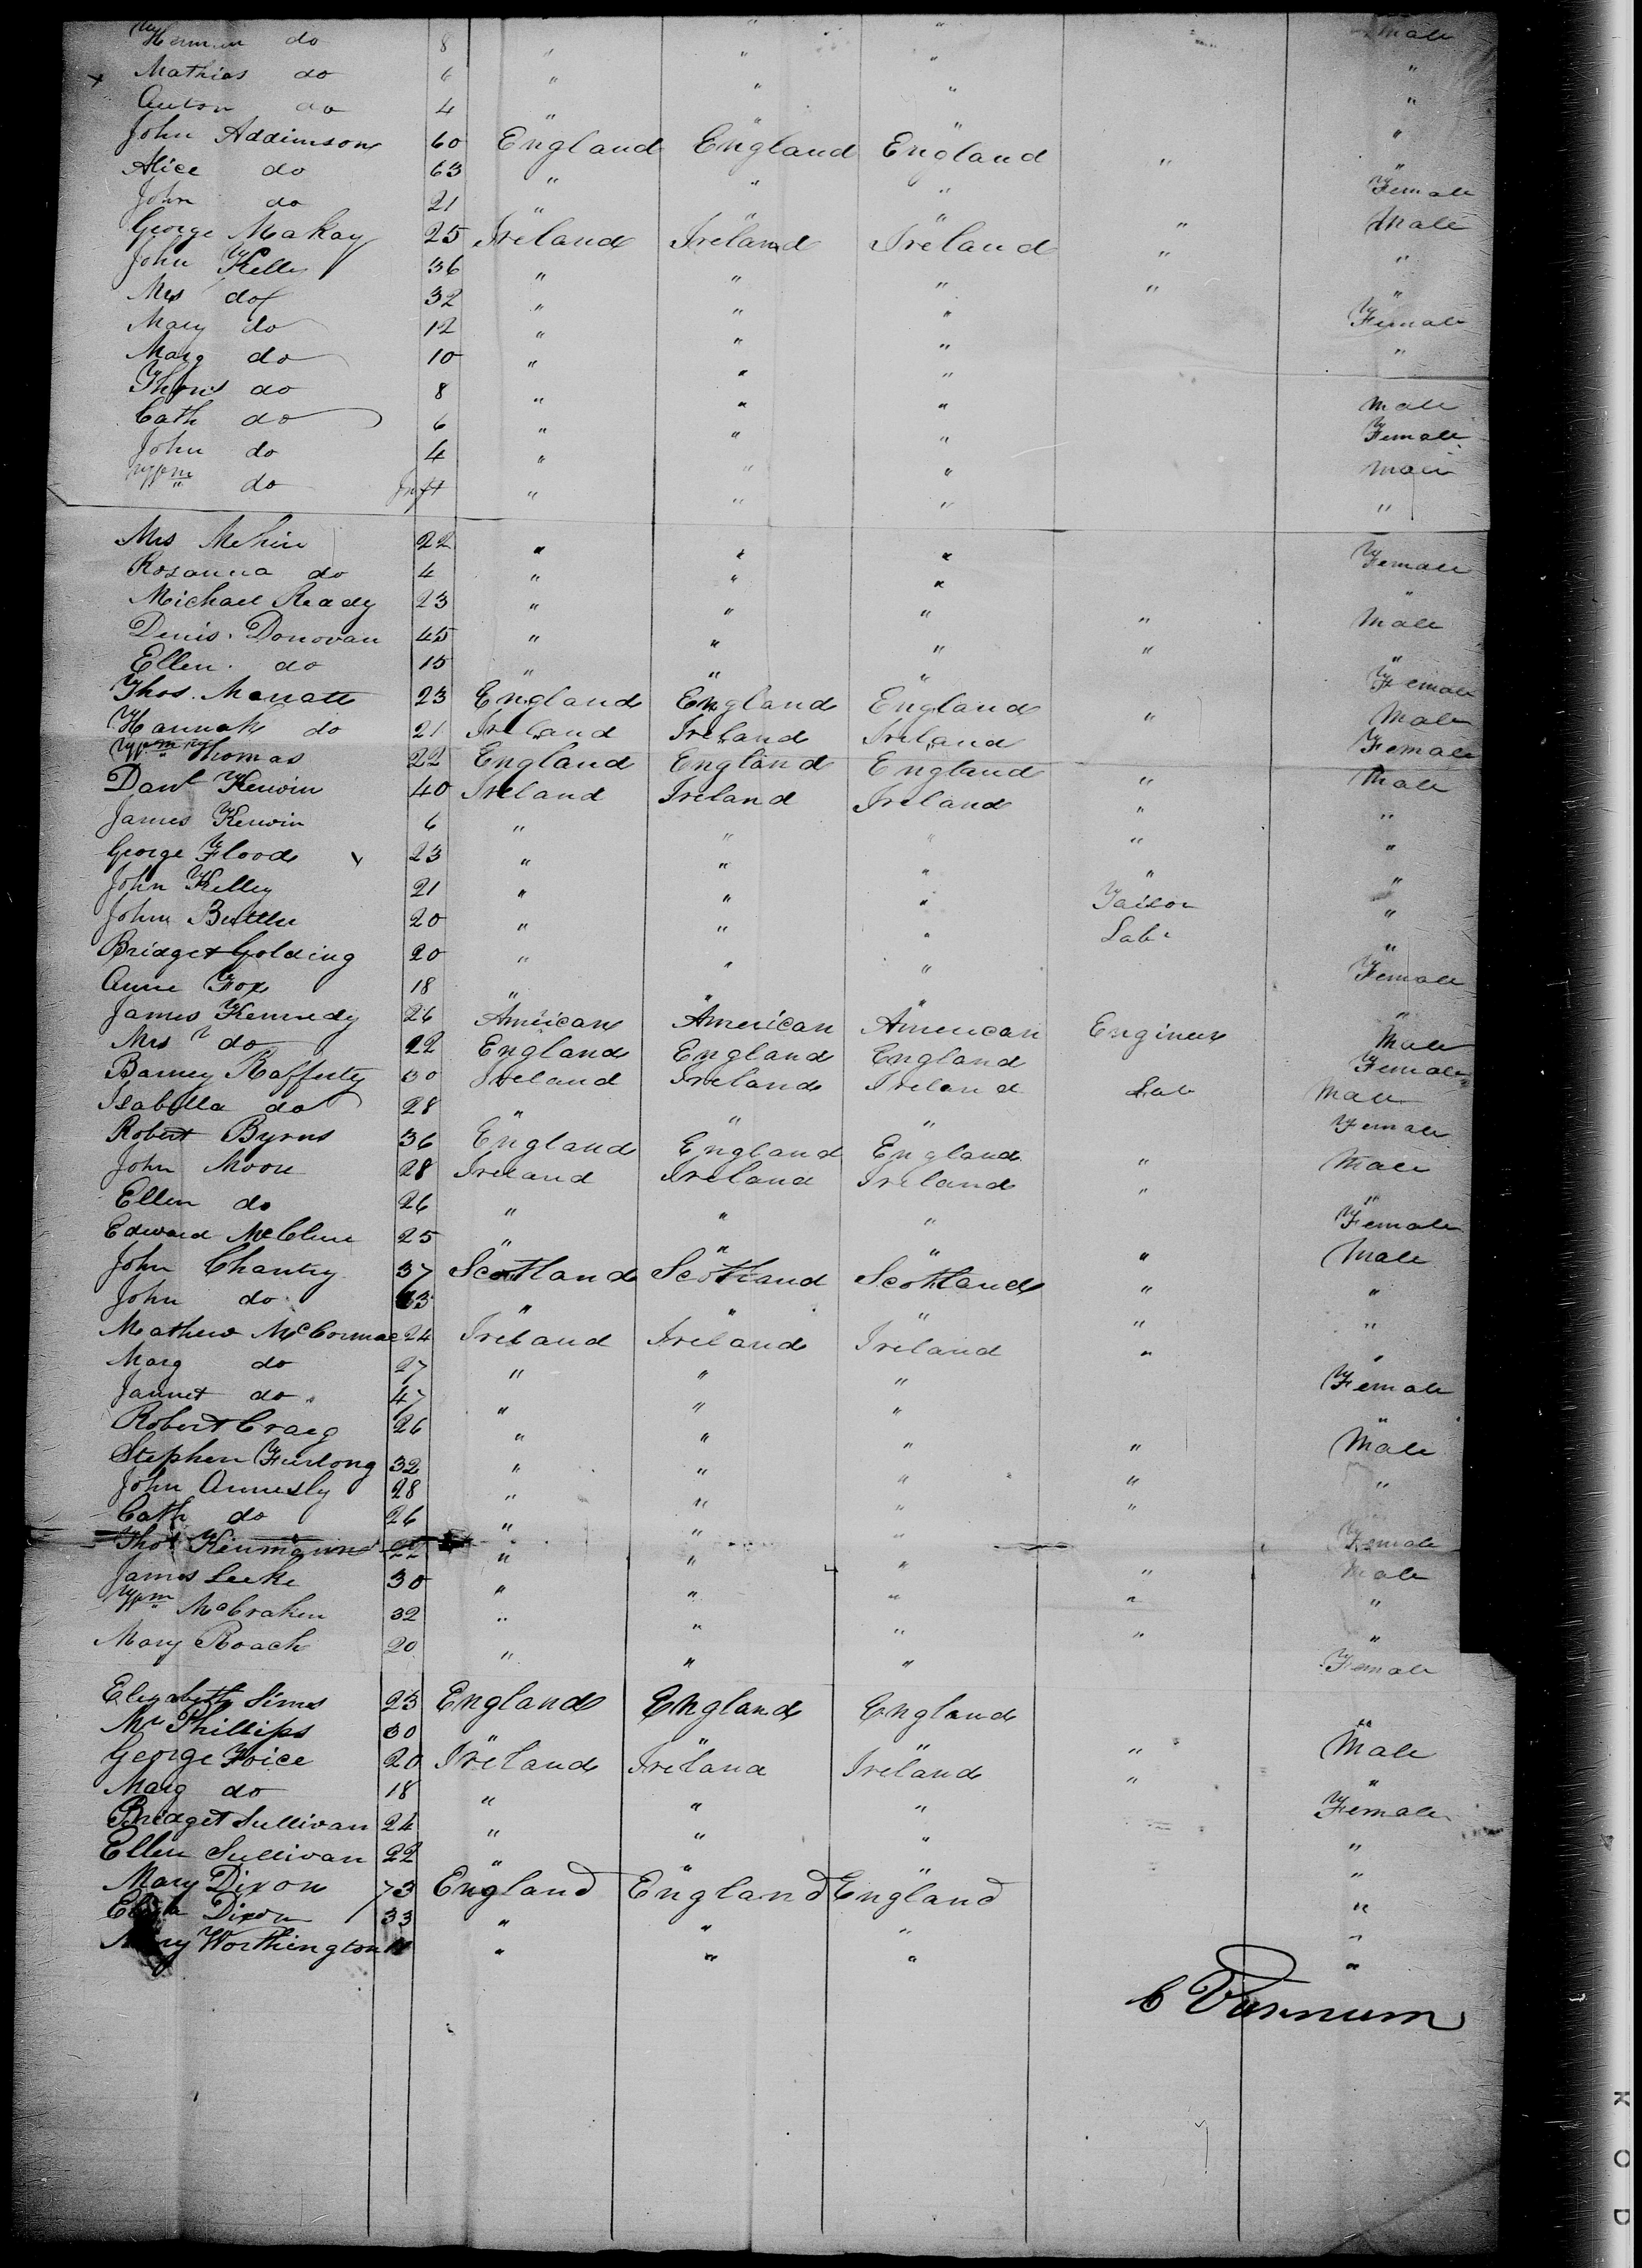 Herman do 8 " " " Male
Mathias do 6 " " " "
Anton do 4 " " " "
John Addimson 60 England England England " "
Alice do 63 " " " Female
John do 21 " " " " Male
George MaKay 25 Ireland Ireland Ireland " "
John Kelly 36 " " " " "
Mrs do 32 " " " Female
Mary do 12 " " " "
Marg do 10 " " "
Thoms do 8 " " " Male
Cath do 6 " " " Female
John do 4 " " " Male
Wm do Inft " " " "
Mrs 22 " " " Female
Rosanna do 4 " " " "
Michael Ready 23 " " " " Male
Denis Donovan 45 " " " " "
Ellen do 15 " " " Female
Thos. Marratt 23 England England England " Male
Hannah do 21 Ireland Ireland Ireland Female
Wm Thomas 22 England England England " Male
Danl Kerwin 40 Ireland Ireland Ireland " "
James Kerwin 6 " " " " "
George Flood 23 " " " " "
John Kelley 21 " " " Tailor "
John Buttler 20 " " " Labr "
Bridget Golding 20 " " " Female
Anne Fox 18 " " " "
James Kennedy 26 American American American Engineer Male
Mrs do 22 England England England Female
Barney Rafferty 30 Ireland Ireland Ireland Lab Male
Isabella do 28 " " " Female
Robert Byrns 36 England England England " Male
John Moore 28 Ireland Ireland Ireland " "
Ellen do 26 " " " Female
Edward McClure 25 " " " " Male
John Chantry 37 Scotland Scotland Scotland " "
John do " " " " "
Mathew McCormac 24 Ireland Ireland Ireland " "
Marg do 27 " " " Female
Jannet do 47 " " " "
Robert Craig 26 " " " " Male
Stephen Furlong 32 " " " " "
John Annesly 28 " " " "
Cath do 26 " " " Female
Thos 22 " " " " Male
James Leeke 30 " " " " "
Wm McCraken 32 " " " " "
Mary Roach 20 " " " Female
Elizabeth Simes 23 England England England "
Mr Phillips 30 " " " " Male
George Price 20 Ireland Ireland Ireland " "
Marg do 18 " " " Female
Bridget Sullivan 24 " " " "
Ellen Sullivan 22 " " " "
Mary Dixon 73 England England England "
Dixon 33 " " " "
Mary Worthington " " " "
C Varnum
KOD